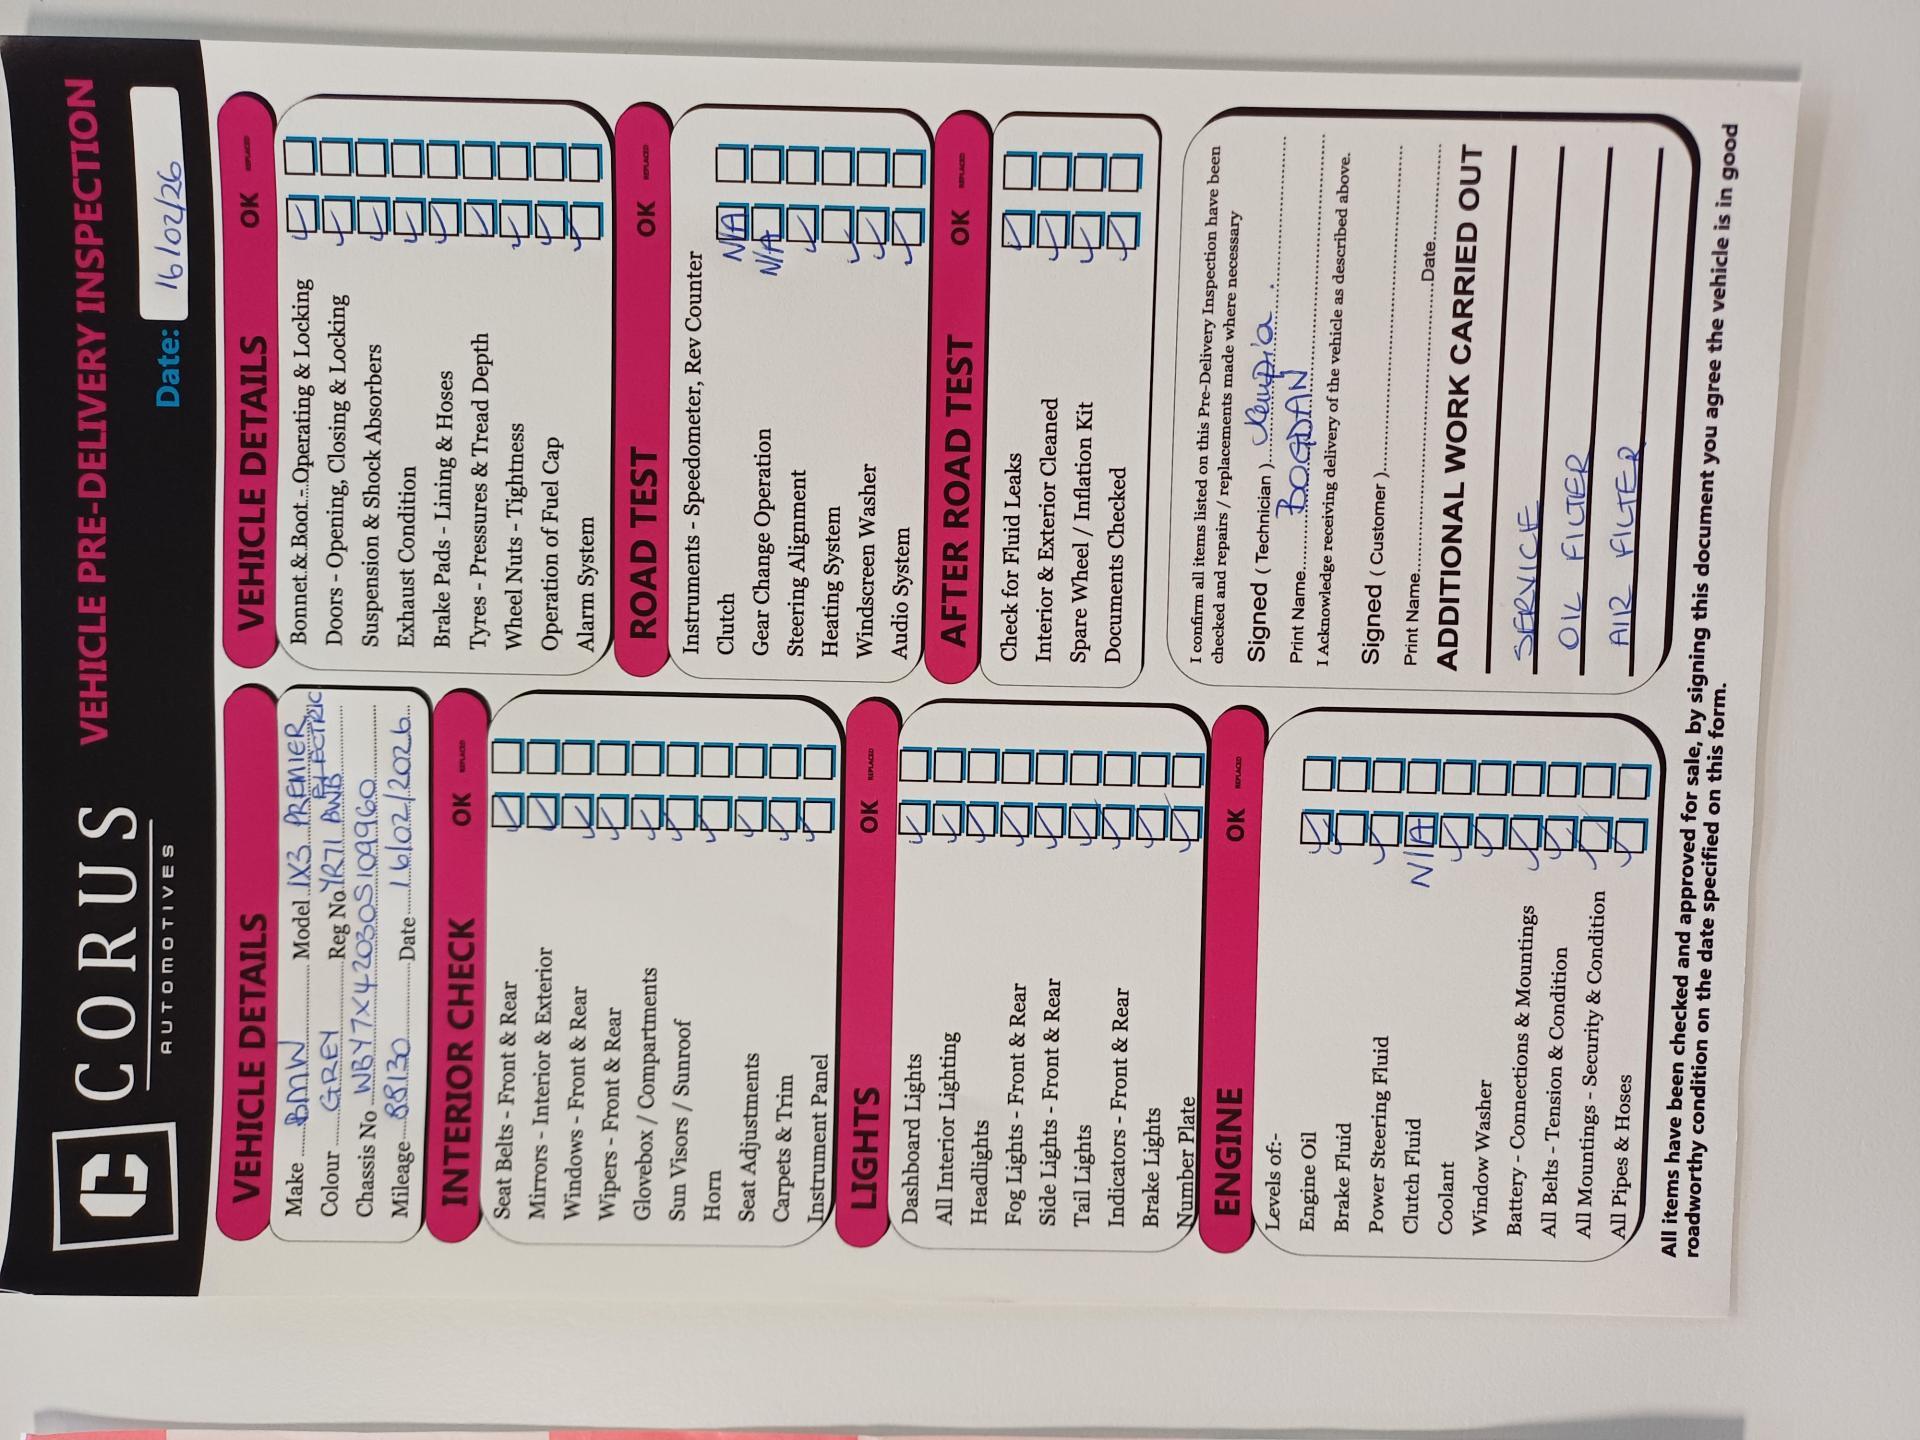 CORUS
AUTOMOTIVES
VEHICLE PRE-DELIVERY INSPECTION
Date: 16/02/26
VEHICLE DETAILS
Make BMW Model IX3 PREMIER
ELECTRIC
Colour GREY Reg No YR71
Chassis No WBY7X42030S109960
Mileage 88130 Date 16/02/2026
INTERIOR CHECK OK REPLACED
Seat Belts - Front & Rear
Mirrors - Interior & Exterior
Windows - Front & Rear
Wipers - Front & Rear
Glovebox / Compartments
Sun Visors / Sunroof
Horn
Seat Adjustments
Carpets & Trim
Instrument Panel
LIGHTS OK REPLACED
Dashboard Lights
All Interior Lighting
Headlights
Fog Lights - Front & Rear
Side Lights - Front & Rear
Tail Lights
Indicators - Front & Rear
Brake Lights
Number Plate
ENGINE OK REPLACED
Levels of:-
Engine Oil
Brake Fluid
Power Steering Fluid
Clutch Fluid N/A
Coolant
Window Washer
Battery - Connections & Mountings
All Belts - Tension & Condition
All Mountings - Security & Condition
All Pipes & Hoses
VEHICLE DETAILS OK REPLACED
Bonnet & Boot - Operating & Locking
Doors - Opening, Closing & Locking
Suspension & Shock Absorbers
Exhaust Condition
Brake Pads - Lining & Hoses
Tyres - Pressures & Tread Depth
Wheel Nuts - Tightness
Operation of Fuel Cap
Alarm System
ROAD TEST OK REPLACED
Instruments - Speedometer, Rev Counter
Clutch N/A
Gear Change Operation N/A
Steering Alignment
Heating System
Windscreen Washer
Audio System
AFTER ROAD TEST OK REPLACED
Check for Fluid Leaks
Interior & Exterior Cleaned
Spare Wheel / Inflation Kit
Documents Checked
I confirm all items listed on this Pre-Delivery Inspection have been
checked and repairs / replacements made where necessary
Signed ( Technician )
Print Name BOGDAN
I Acknowledge receiving delivery of the vehicle as described above.
Signed ( Customer )
Print Name Date
ADDITIONAL WORK CARRIED OUT
SERVICE
OIL FILTER
AIR FILTER
All items have been checked and approved for sale, by signing this document you agree the vehicle is in good
roadworthy condition on the date specified on this form.